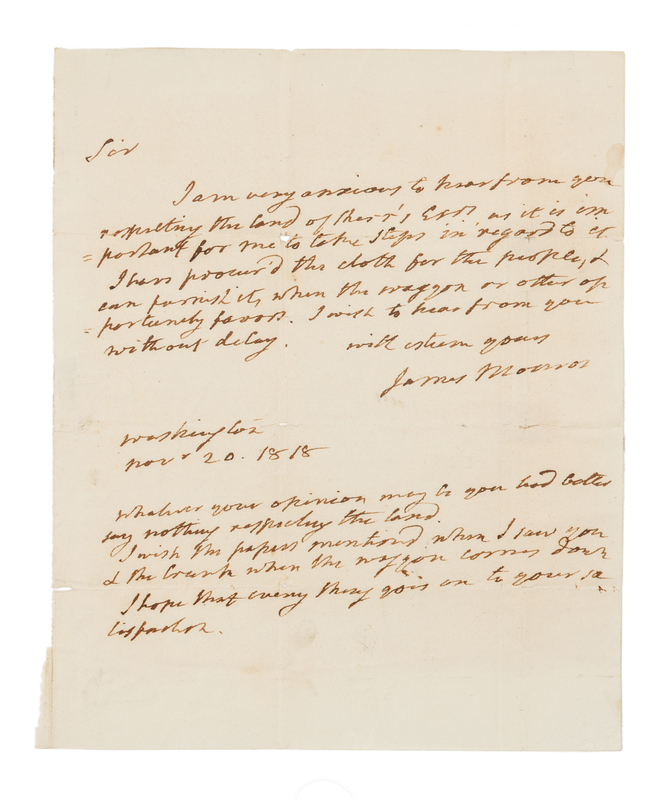 Sir
I am very anxious to hear from you
respecting the land of as it is im
=portant for me to take steps in regard to it
I have procur'd the cloth for the people, &
can furnish it, when the waggon or other op
=portunity favors. I wish to hear from you
without delay. with esteem yours
James Monroe
Washington
Novr 20. 1818
whatever your opinion may be you had better
say nothing respecting the land.
I wish the papers mentiond when I saw you
& the trunk when the waggon comes down
I hope that every thing goes on to your sa
tisfaction.